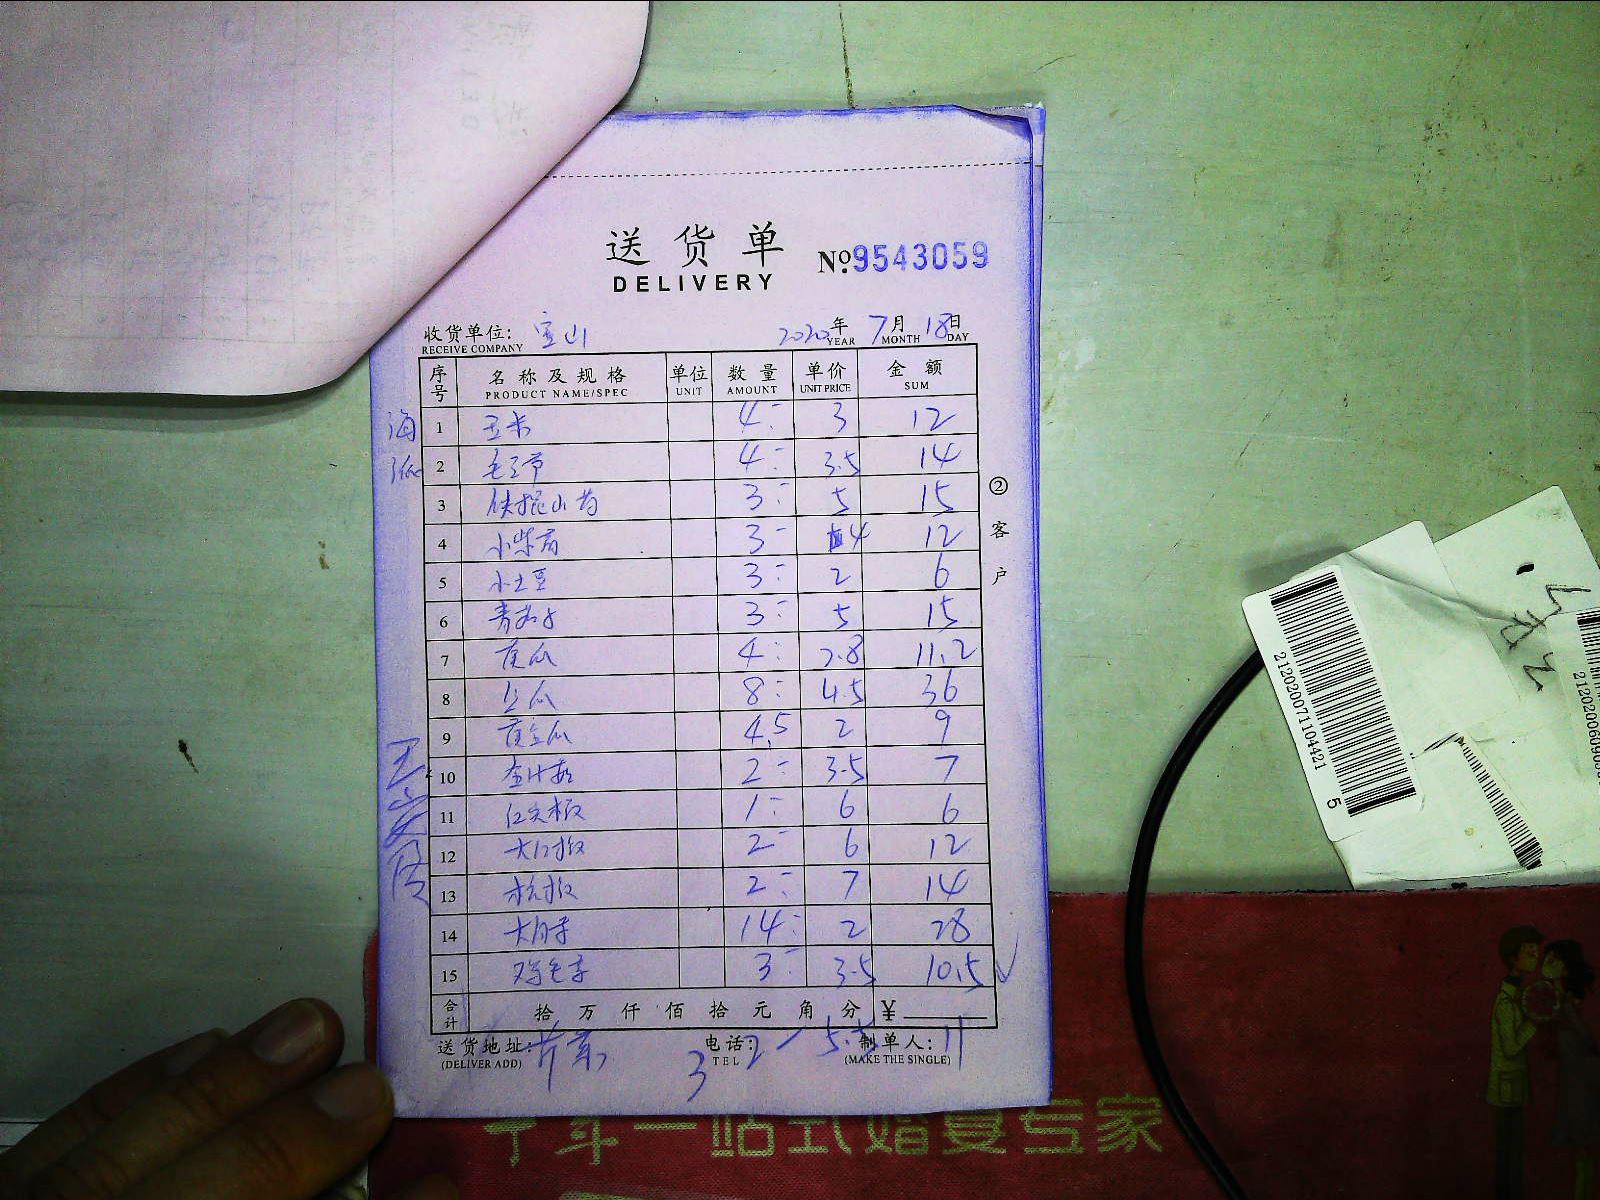 送货单
DELIVERY
No.9543059
收货单位: 宝山 2020年 7月 18日
RECEIVE COMPANY YEAR MONTH DAY
序号 名称及规格 单位 数量 单价 金额
PRODUCT NAME/SPEC UNIT AMOUNT UNIT PRICE SUM
1 玉米 4- 3 12
2 毛豆节 4- 3.5 14
3 铁棍山药 3- 5 15
4 3- 4 12
5 小土豆 3- 2 6
6 青茄子 3- 5 15
7 黄瓜 4- 2.8 11.2
8 瓜 8- 4.5 36
9 瓜 4.5 2 9
10 2- 3.5 7
11 红尖椒 1- 6 6
12 2- 6 12
13 2- 7 14
14 14- 2 28
15 鸡毛菜 3- 3.5 10.5
② 客户
合计 拾万仟佰拾元角分 ¥
送货地址: 电话: 制单人:
(DELIVER ADD) TEL (MAKE THE SINGLE)
3 2- 5.5 11
一站式婚宴专家
2120200711104421
5